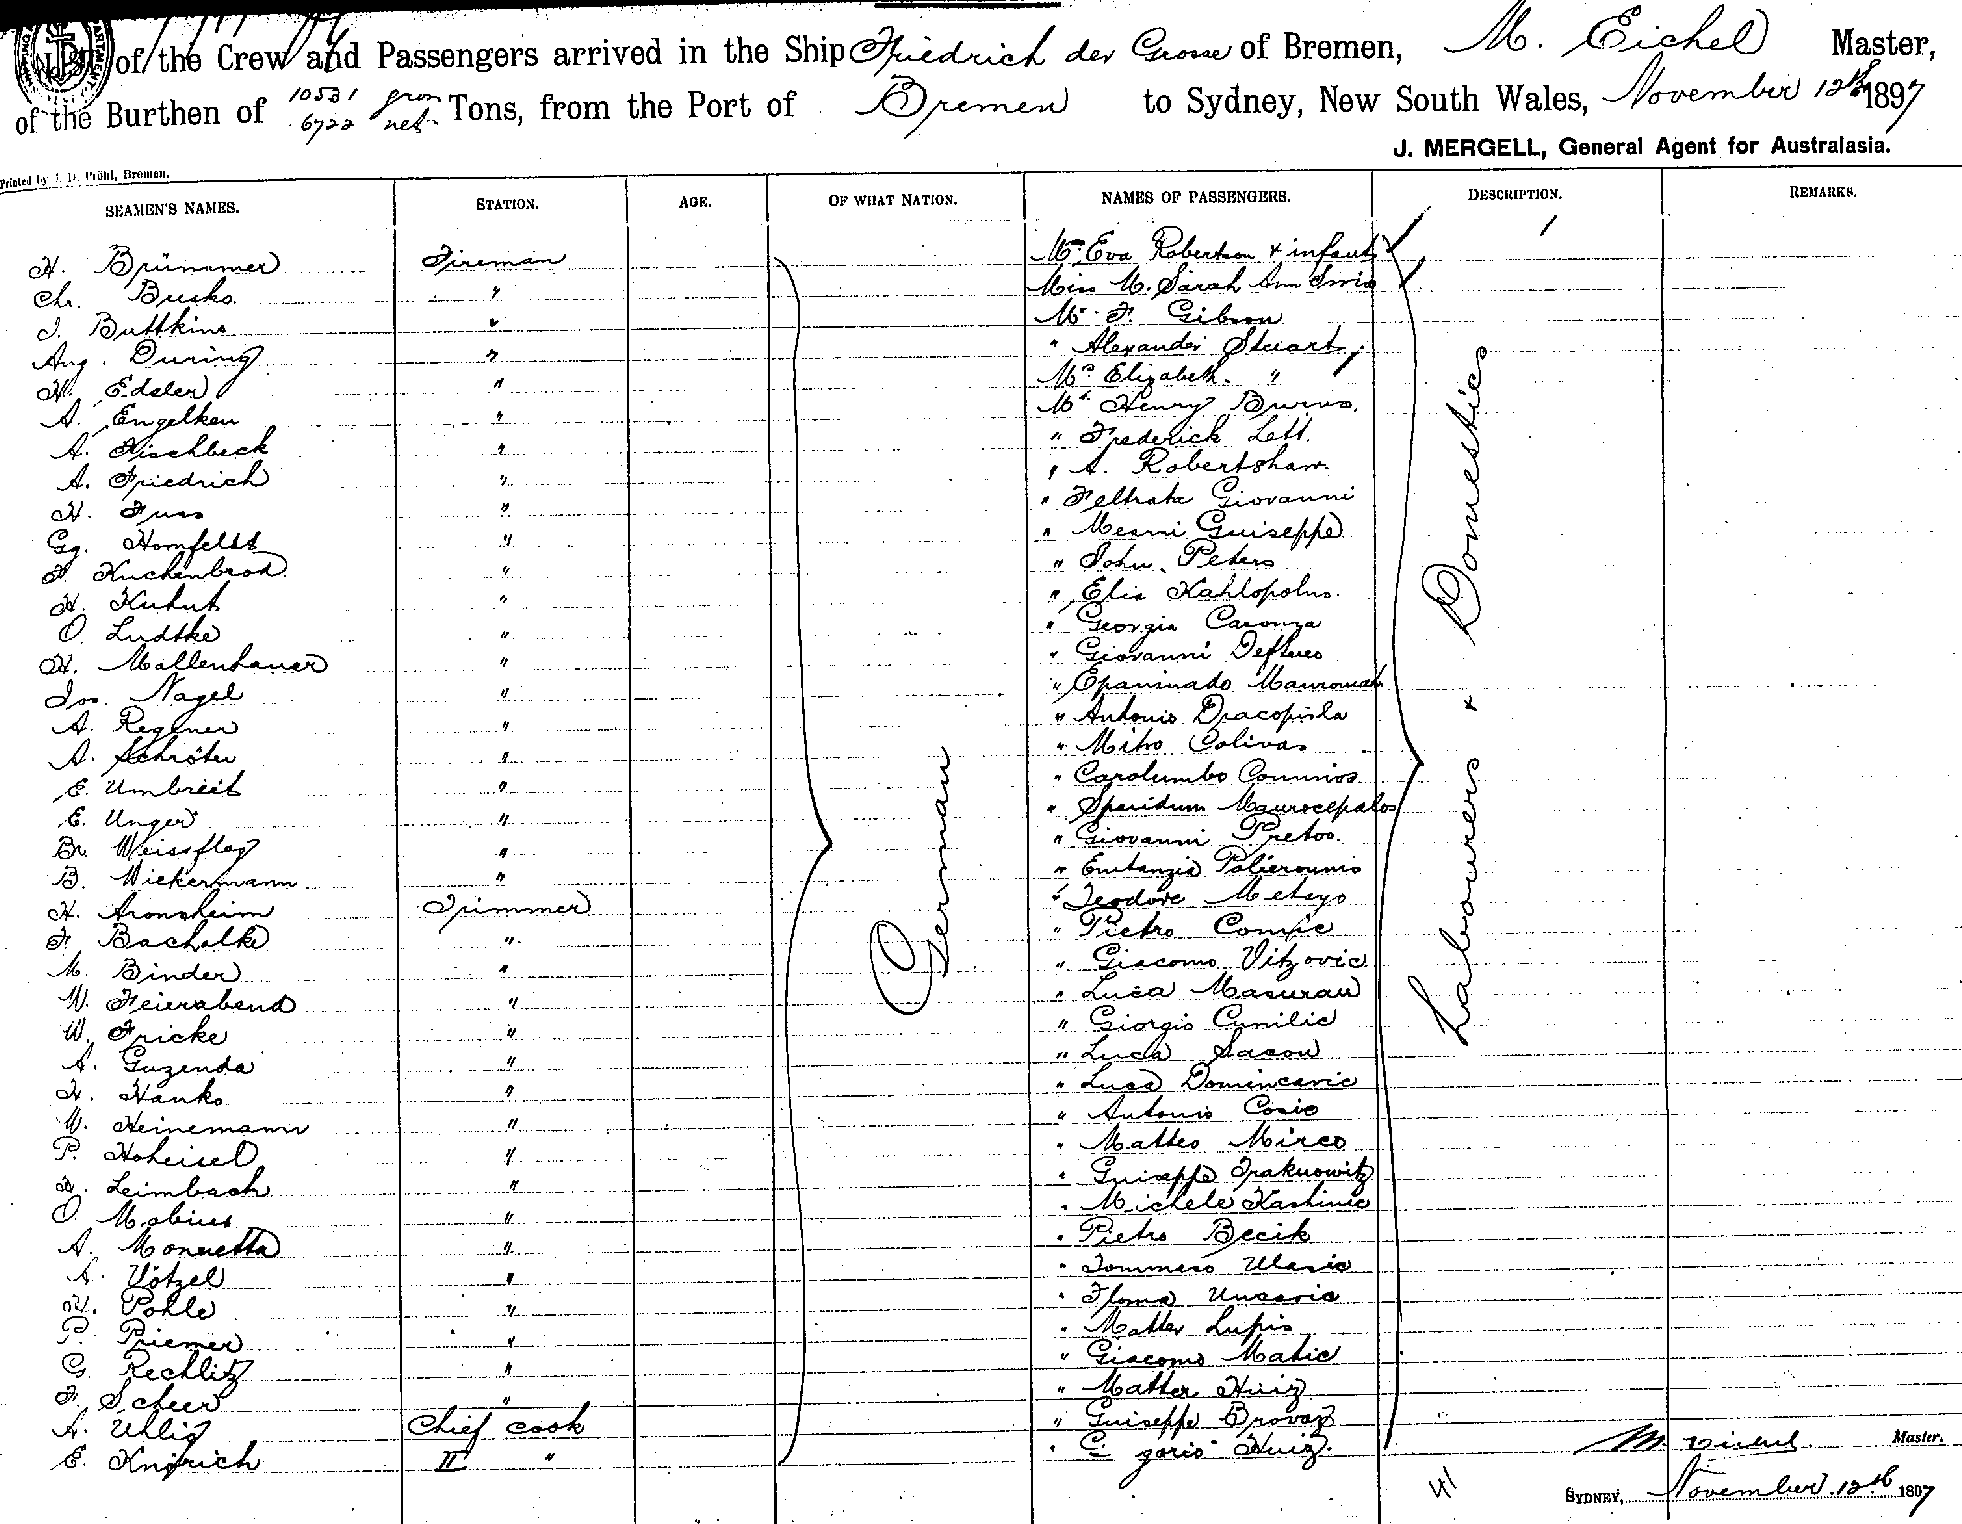 of the Crew and Passengers arrived in the Ship Friedrich der Grosse of Bremen, M. Eichel Master,
of the Burthen of 10531 gross 6722 net Tons, from the Port of Bremen to Sydney, New South Wales, November 12th 1897
J. MERGELL, General Agent for Australasia.
Printed by Bremen.
SEAMEN'S NAMES. STATION. AGE. OF WHAT NATION. NAMES OF PASSENGERS. DESCRIPTION. REMARKS.
H. Brümmer Fireman Mrs Eva Robertson & infant
Chr. Busko " Miss M. Sarah Ann
Buttkins " Mr F. Gibson
Aug. During " " Alexander Stuart
H. Edeler " Mrs Elizabeth "
A. Engelken " Mr Henry Burns.
A. Fischbeck " " Frederick Lett.
A. Friedrich " " A. Robertshaw.
H. Fuss " " Giovanni
Gg. Hornfeldt " " Guiseppe
F. Kuchenbrod " " John Peters
H. Kuhnt " " Elia Kahlopolus.
O. Ludtke " " Georgia
H. Mallenhauer " " Giovanni
Jos. Nagel " "
A. Regener " " Antonio
A. Schröter " " Mitro Colivas
E. Umbreit " " Carolumbo
E. Unger " " Maurocepalos
Br. Weissflog " " Giovanni Pretos.
B. Wiekermann " "
H. Aronsheim Trimmer " Teodore
F. Bachalke " " Pietro
M. Binder " " Giacomo Vitzovic
W. Feierabend " " Luca Masurau
W. Fricke " " Giorgio Cunilic
A. Guzenda " " Luca Sacou
F. Hanko " " Luca Domincavic
W. Heinemann " " Antonio Cosic
P. Hoheisel " " Matteo Mirco
Leimbach " " Guiseppe
O. Mobius " " Michele Kashinic
A. " " Pietro Becik
A. Vötzel " " Tommaso Vlasic
H. Pohle " "
P. Priemer " " Matteo Lupis
G. Rechlitz " " Giacomo Matic
F. Scheer " "
A. Uhlig Chief cook " Guiseppe
E. II " "
German
Labourers & Domestics
41
M Eichel Master.
SYDNEY, November 12th 1897